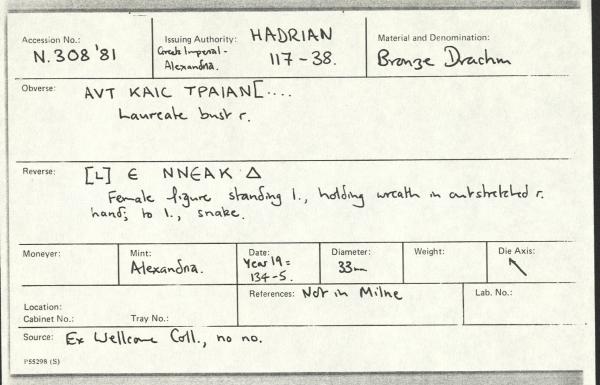 Accession No.:
N.308 '81
Issuing Authority: HADRIAN
Greek Imperial -
Alexandria.
117 - 38.
Material and Denomination:
Bronze Drachm
Obverse:
AVT KAIC TPAIAN[....
Laureate bust r.
Reverse:
[L] Є NNЄAK Δ
Female figure standing l., holding wreath in outstretched r.
hand; to l., snake.
Moneyer:
Mint:
Alexandria.
Date:
Year 19 =
134-5.
Diameter:
33mm
Weight:
Die Axis:
↖
Location:
Cabinet No.:
Tray No.:
References: Not in Milne
Lab. No.:
Source: Ex Wellcome Coll., no no.
P55298 (S)